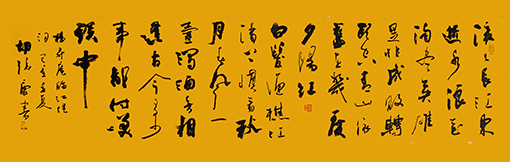 滚滚长江东
逝水浪花
淘尽英雄
是非成败转
头空青山依
旧在几度
夕阳红
白发渔樵江
渚上惯看秋
月春风一
壶浊酒喜相
逢古今多少
事都付笑
谈中
杨慎
书